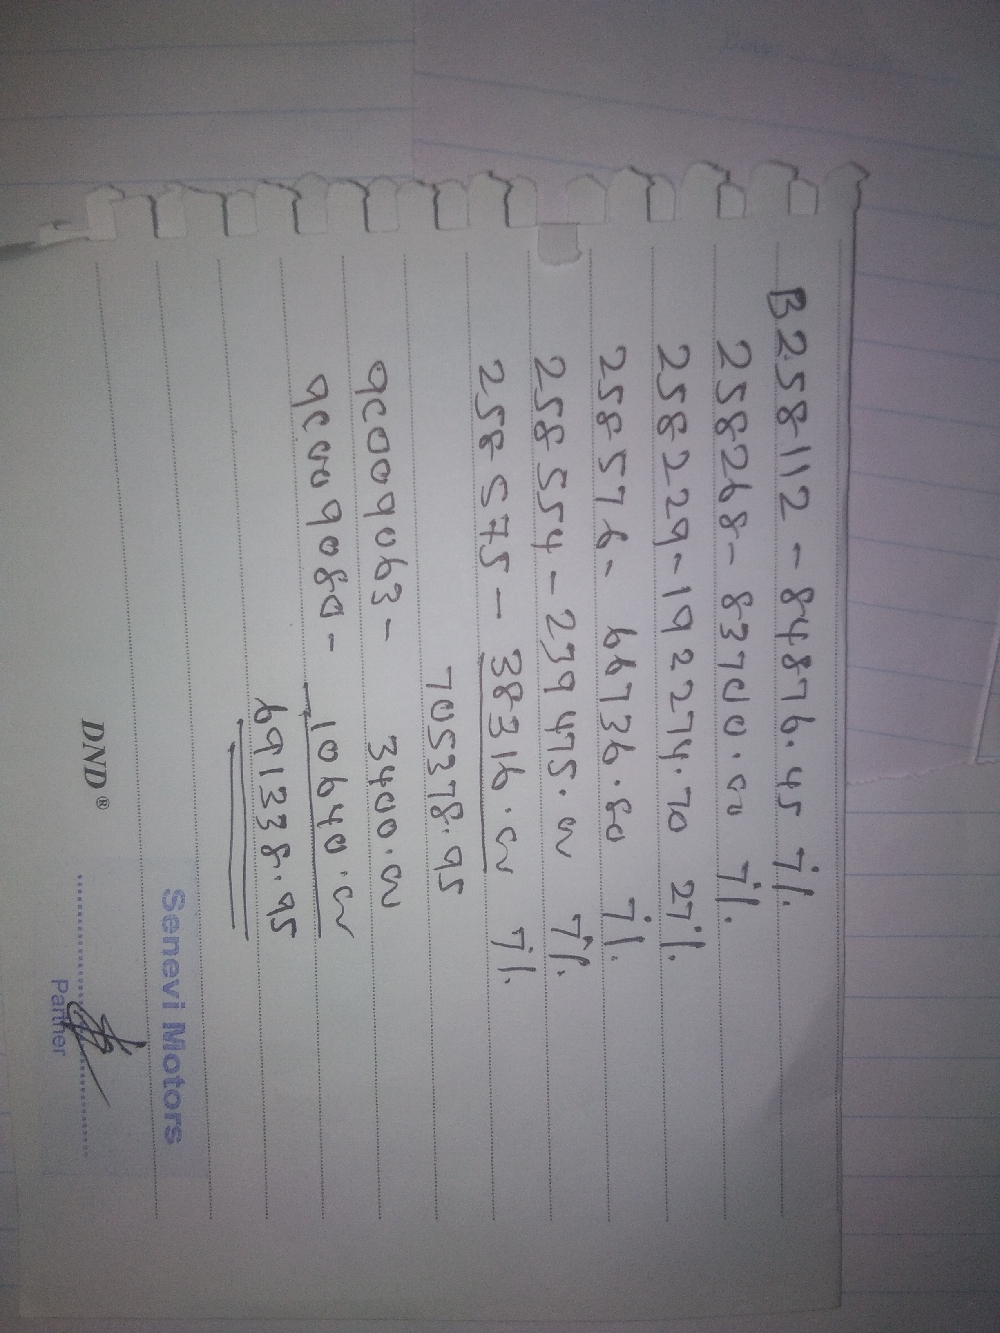 B258112 - 84876.45 7%
258268 - 83700.00 7%
258229 - 192274.70 27%
258576 - 66736.80 7%
258554 - 239475.00 7%
258575 - 38316.00 7%
705378.95
9C009063 - 3400.00
9C009080 - 10640.00
691338.95
Senevi Motors
DND®
Partner